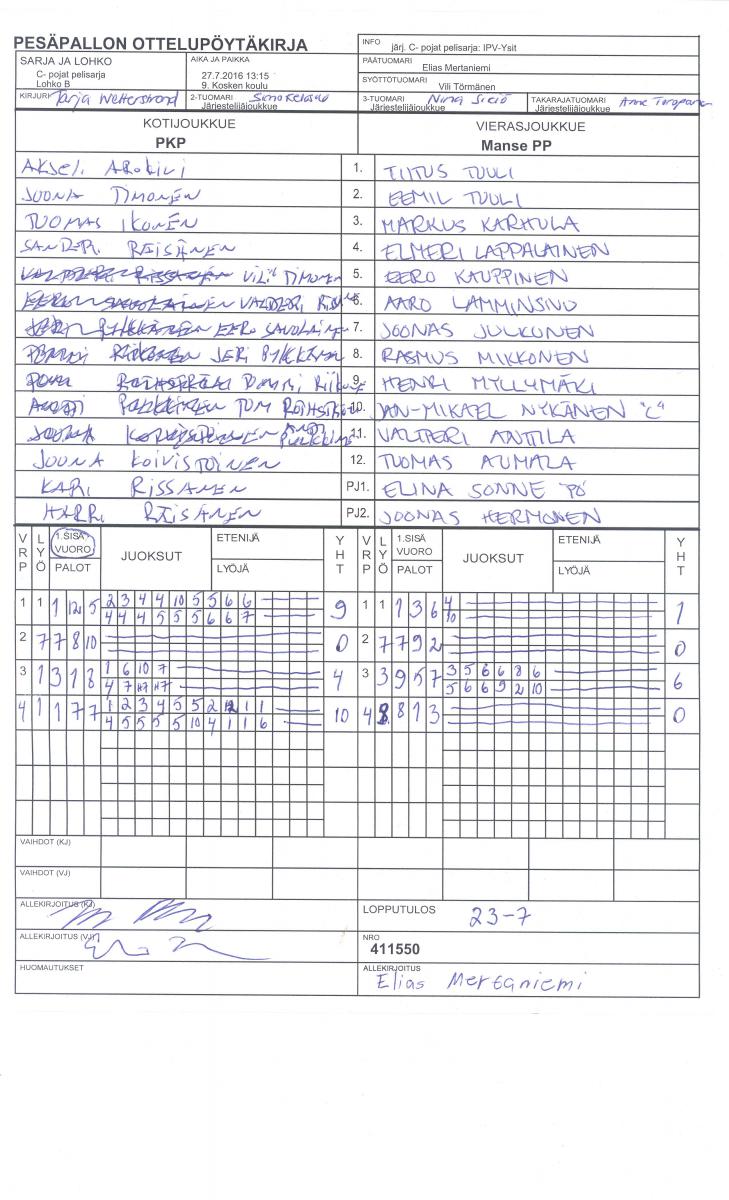 PESÄPALLON OTTELUPÖYTÄKIRJA
INFO järj. C- pojat pelisarja: IPV-Ysit
SARJA JA LOHKO
C- pojat pelisarja
Lohko B
AIKA JA PAIKKA
27.7.2016 13:15
9. Kosken koulu
PÄÄTUOMARI
Elias Mertaniemi
SYÖTTÖTUOMARI
Vili Törmänen
KIRJURI Tarja Wetterstrand
2-TUOMARI
Järjestelijäjoukkue
3-TUOMARI Nina
Järjestelijäjoukkue
TAKARAJATUOMARI Anne Toropainen
Järjestelijäjoukkue
KOTIJOUKKUE
PKP
VIERASJOUKKUE
Manse PP
AKSELI AROKIVI 1. TIITUS TUULI
JOONA TIMONEN 2. EEMIL TUULI
TUOMAS IKONEN 3. MARKUS KARHULA
SANDERI RÄISÄNEN 4. ELMERI LAPPALAINEN
VILI TIMONEN 5. EERO KAUPPINEN
VALDERI 6. AARO LAMMINSIVU
EERO SAVOLAINEN 7. JOONAS JULKUNEN
JERI PYLKKÄNEN 8. RASMUS MIKKONEN
9. HENRI MYLLYMÄKI
TOM 10. JAN-MIKAEL NYKÄNEN "C"
11. VALTTERI ANTTILA
JOONA KOIVISTOINEN 12. TUOMAS AUMALA
KARI RISSANEN PJ1. ELINA SONNE PÖ
HARRI RÄISÄNEN PJ2. JOONAS HERMONEN
VRP LYÖ 1.SISÄ VUORO PALOT JUOKSUT ETENIJÄ LYÖJÄ YHT VRP LYÖ 1.SISÄ VUORO PALOT JUOKSUT ETENIJÄ LYÖJÄ YHT
1 1 1 12 5 2 3 4 4 10 5 5 6 6 9 1 1 1 3 6 4 1
4 4 4 5 5 5 6 6 7 10
2 7 7 8 10 0 2 7 7 9 2 0
3 1 3 1 8 1 6 10 7 4 3 3 9 5 7 3 5 6 6 8 6 6
4 7 H7 H7 5 6 6 9 2 10
4 1 1 7 7 1 2 3 4 5 5 2 12 1 1 10 4 8 8 1 3 0
4 5 5 5 5 10 4 1 1 6
VAIHDOT (KJ)
VAIHDOT (VJ)
ALLEKIRJOITUS (KJ)
LOPPUTULOS 23-7
ALLEKIRJOITUS (VJ)
NRO
411550
HUOMAUTUKSET
ALLEKIRJOITUS
Elias Mertaniemi